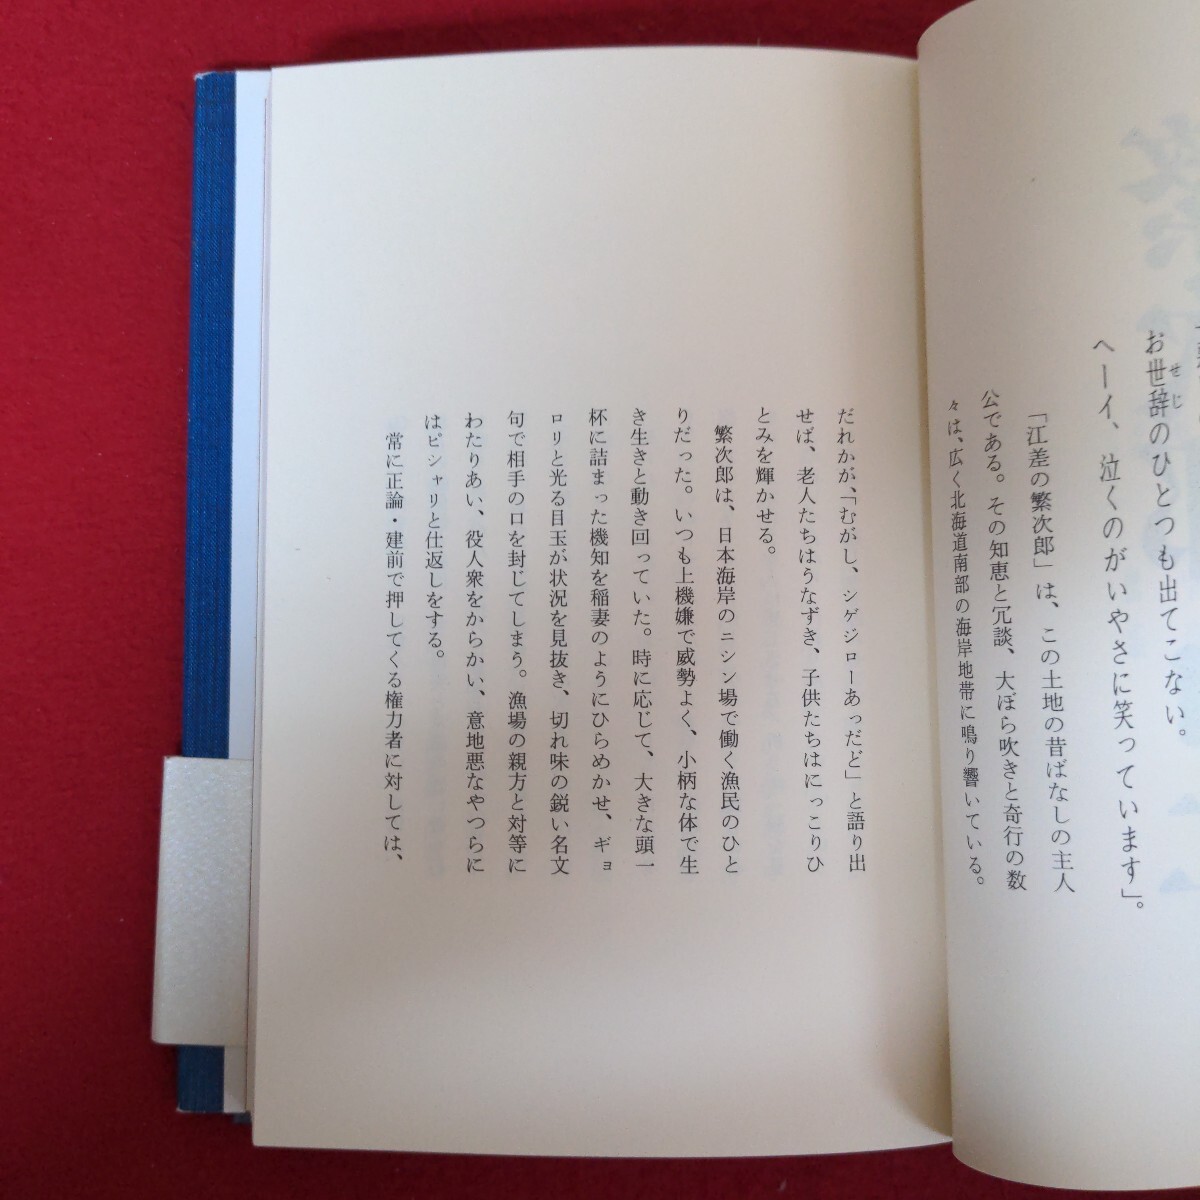 お世辞のひとつも出てこない。
せじ
ヘーイ、泣くのがいやさに笑っています」。
「江差の繁次郎」は、この土地の昔ばなしの主人
公である。その知恵と冗談、大ぼら吹きと奇行の数
々は、広く北海道南部の海岸地帯に鳴り響いている。
だれかが、「むがし、シゲジローあっだど」と語り出
せば、老人たちはうなずき、子供たちはにっこりひ
とみを輝かせる。
繁次郎は、日本海岸のニシン場で働く漁民のひと
りだった。いつも上機嫌で威勢よく、小柄な体で生
き生きと動き回っていた。時に応じて、大きな頭一
杯に詰まった機知を稲妻のようにひらめかせ、ギョ
ロリと光る目玉が状況を見抜き、切れ味の鋭い名文
句で相手の口を封じてしまう。漁場の親方と対等に
わたりあい、役人衆をからかい、意地悪なやつらに
はピシャリと仕返しをする。
常に正論・建前で押してくる権力者に対しては、